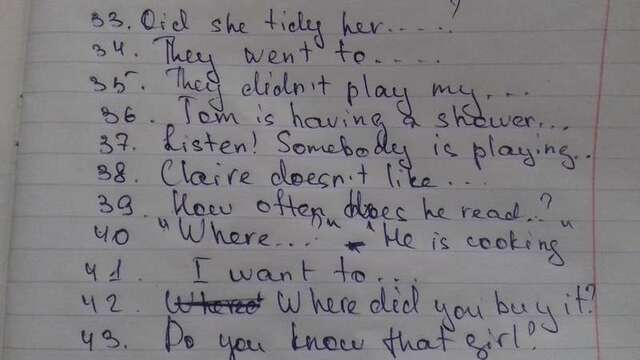 33. Did she tidy her.....?
34. They went to.....
35. They didn't play my...
36. Tom is having a shower...
37. Listen! Somebody is playing..
38. Claire doesn't like...
39. How often does he read..?
40 "Where...." "He is cooking"
41. I want to...
42. Where did you buy it?
43. Do you know that girl?